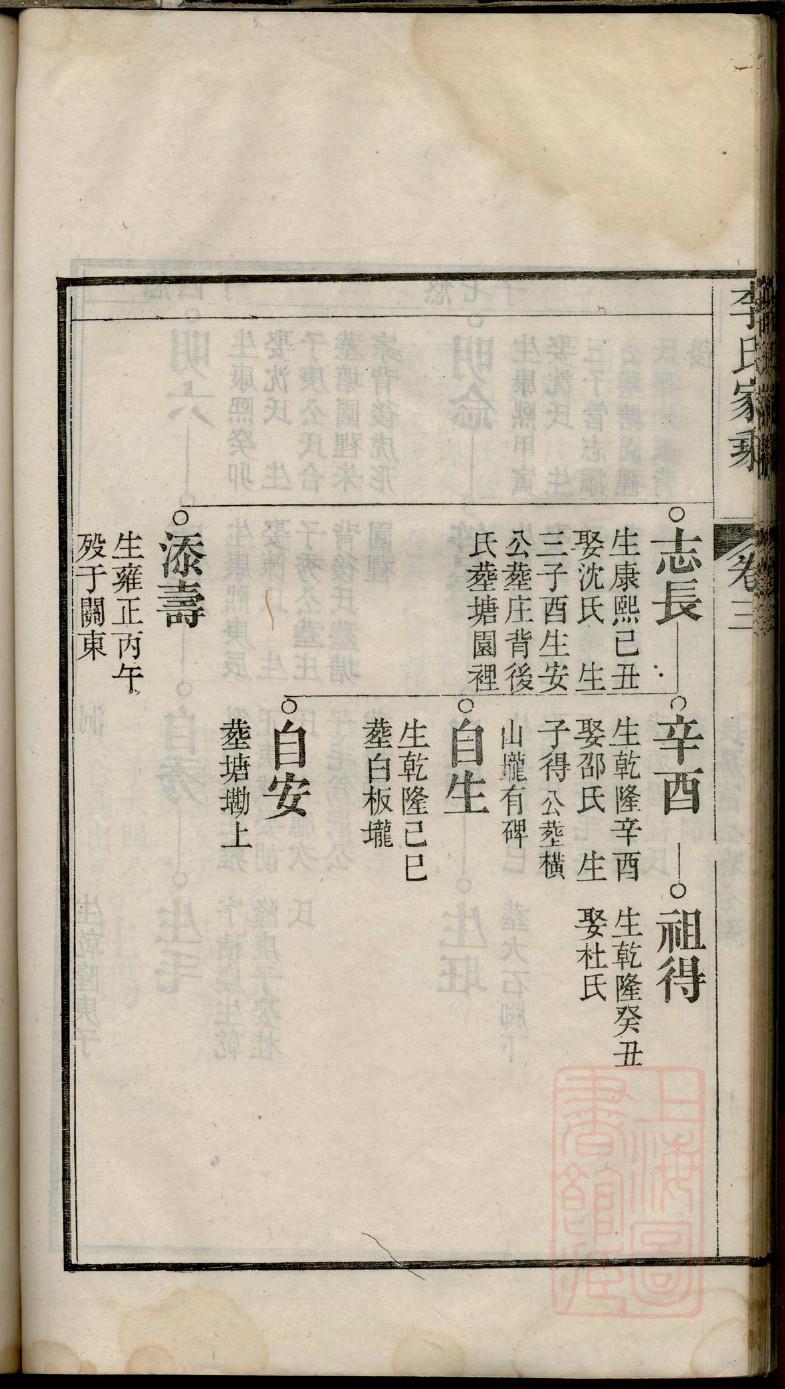 李氏家乘
卷三
志長
生康熙己丑
娶沈氏 生
三子酉生安
公塟庄背後
氏塟塘園裡
辛酉
生乾隆辛酉
娶邵氏 生
子得公塟橫
山壠有碑
祖得
生乾隆癸丑
娶杜氏
自生
生乾隆己巳
塟白板壠
自安
塟塘墈上
添壽
生雍正丙午
殁于關東
上海圖
書館藏